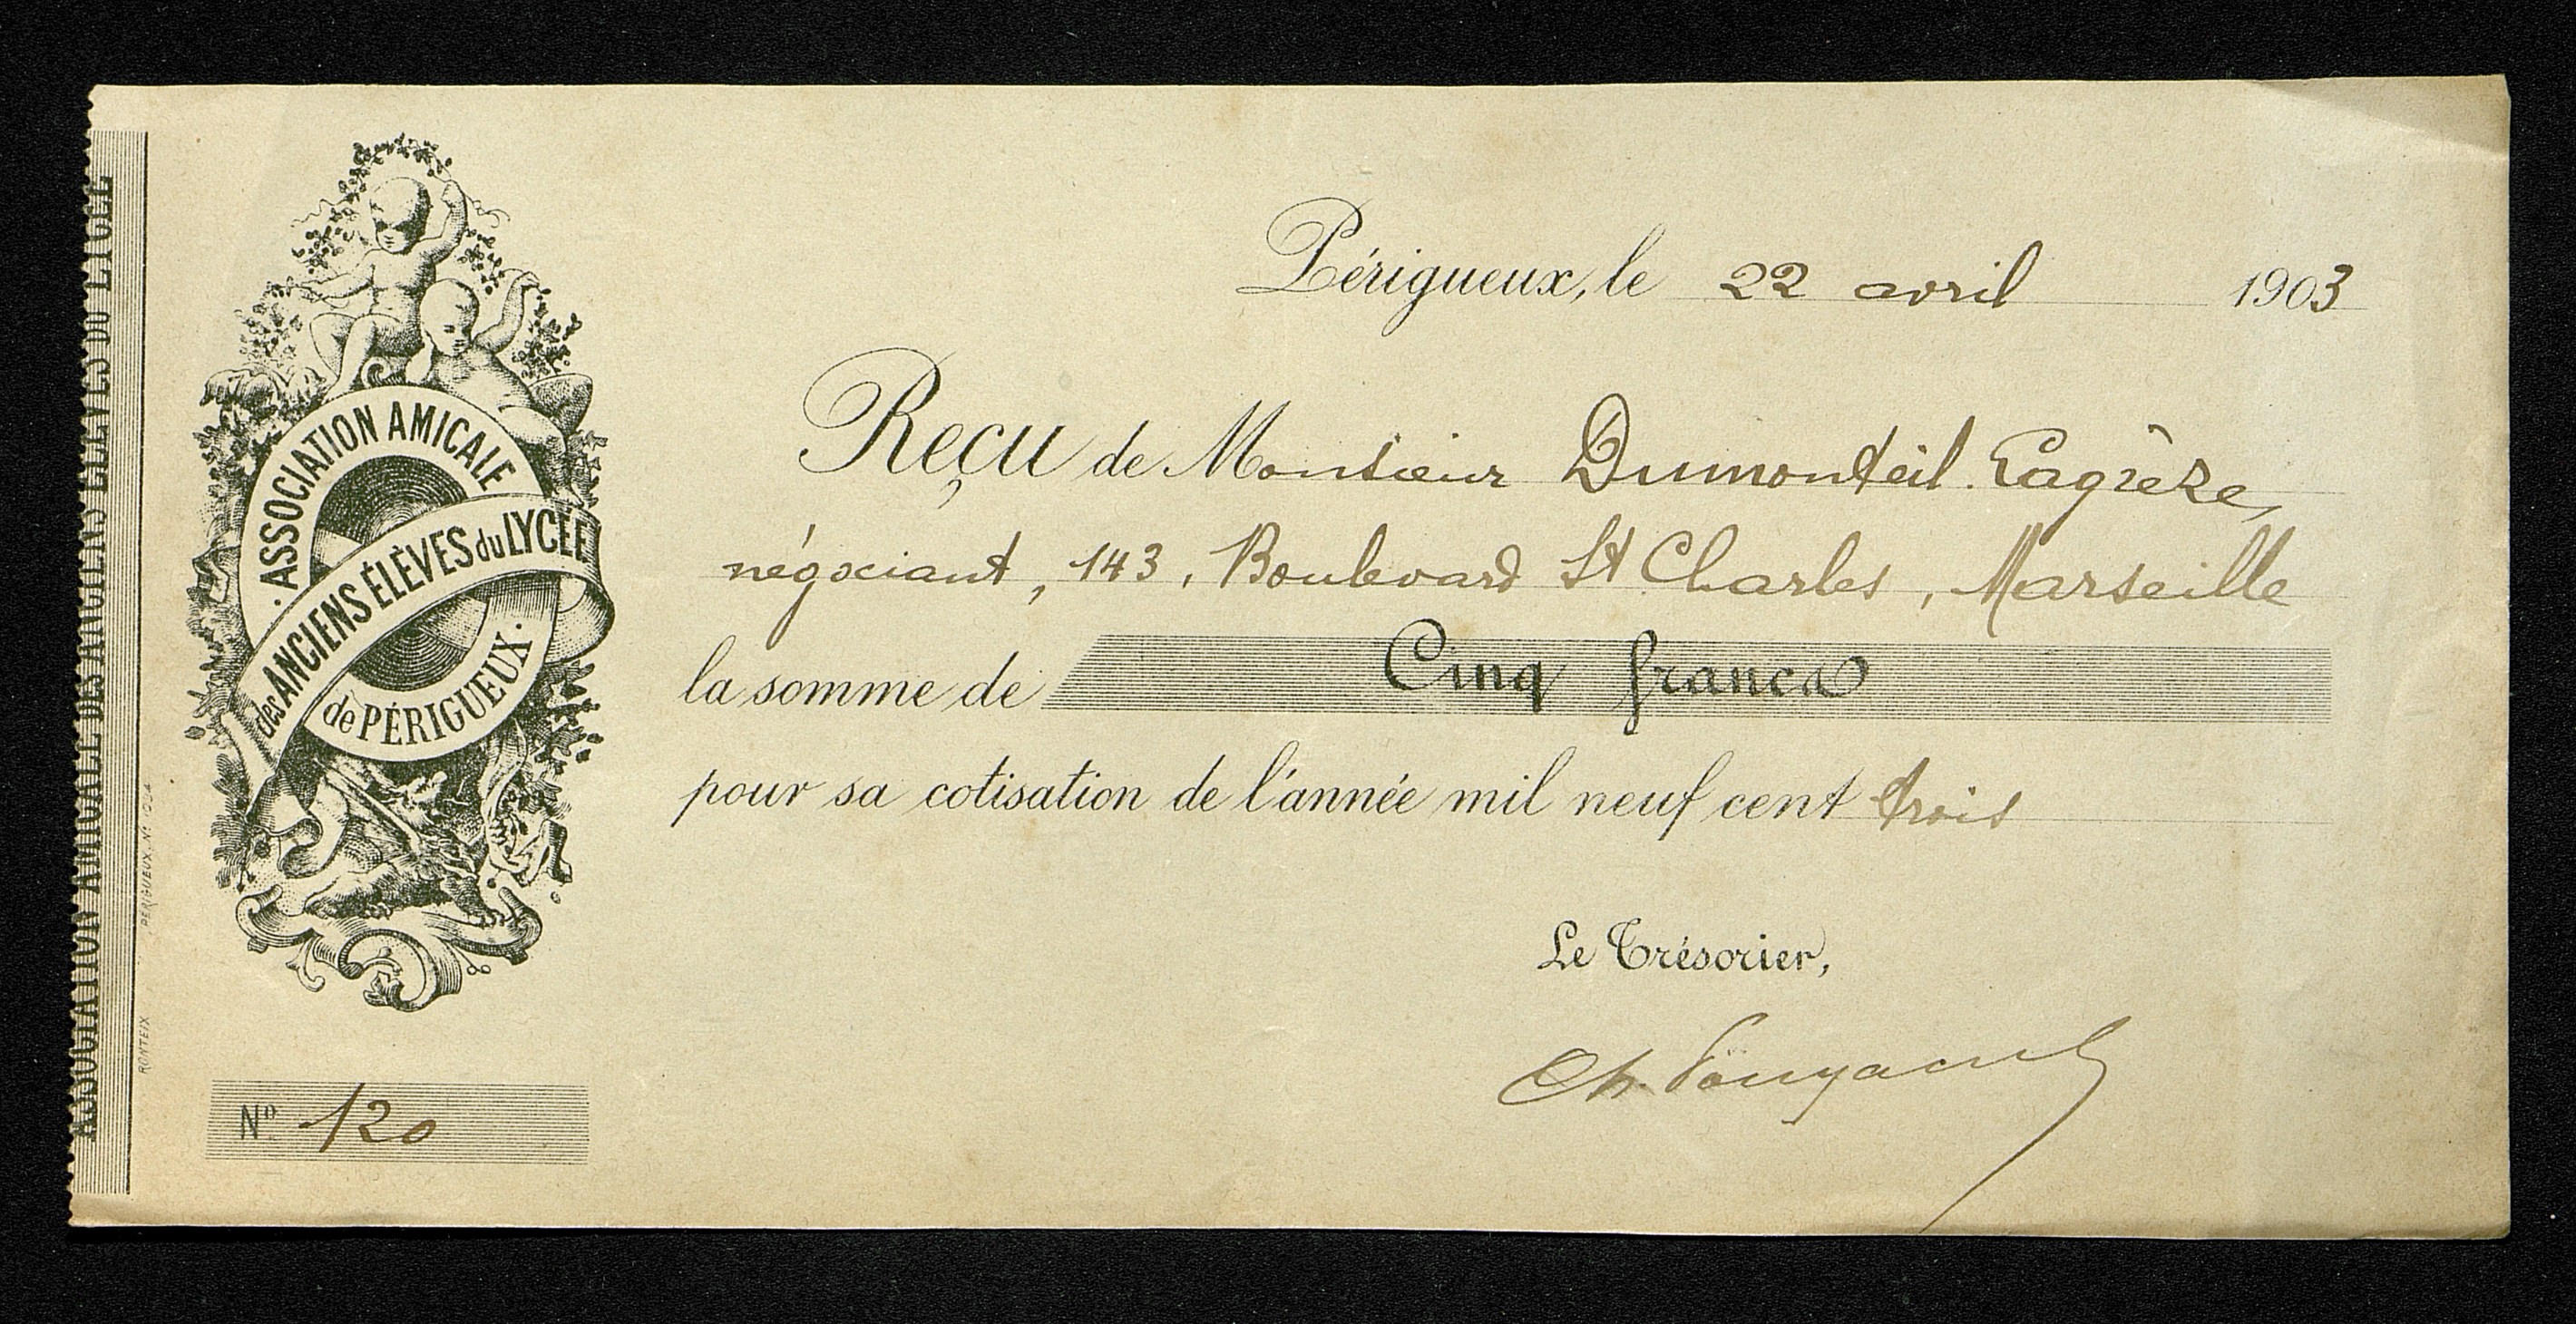 ASSOCIATION AMICALE DES ANCIENS ÉLÈVES DU LYCÉE
PÉRIGUEUX
RONTEIX
· ASSOCIATION AMICALE
des ANCIENS ÉLÈVES du LYCÉE
de PÉRIGUEUX ·
Nº 120
Périgueux, le 22 avril 1903
Reçu de Monsieur Dumonteil. Lagrèze,
négociant, 143, Boulevard St Charles, Marseille
la somme de Cinq francs
pour sa cotisation de l'année mil neuf cent trois
Le Trésorier,
Ch.